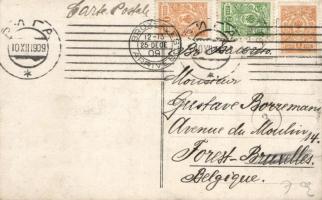 Carte Postale
BRUXELLES
12-15
25 DECE
09
Monsieur
Gustave Borremans
Avenue du Moulin 14.
Forest-Bruxelles.
Belgique.